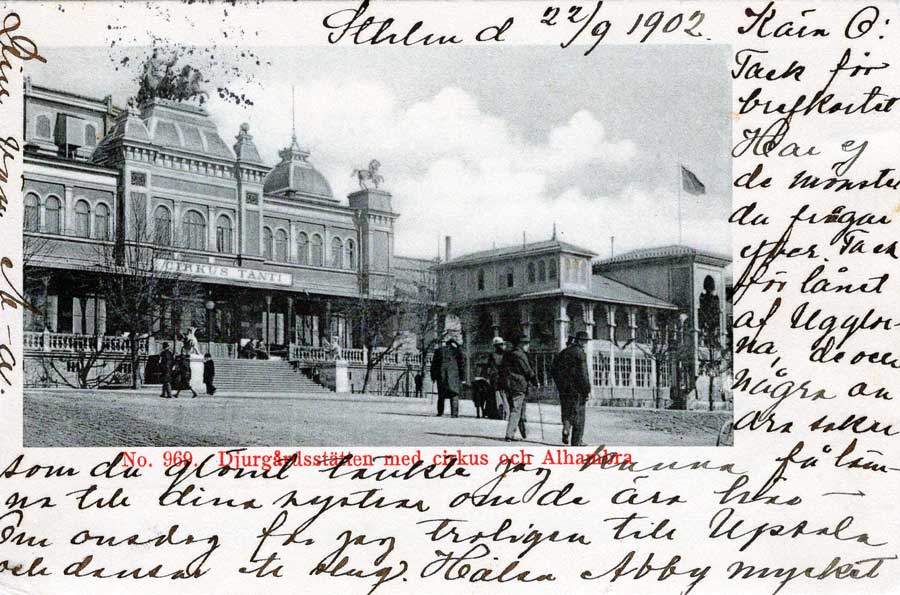 Sthlm d 22/9 1902.
Kära O:
Tack för
brefkortet
Har ej
de mönster
du frågar
efter. Tack
för lånet
af Ugglor-
na, de och
några an
dra saker
CIRKUS TANTI
No. 969. Djurgårdsstätten med cirkus och Alhambra
som du glömt tänkte jag kunna få läm-
na till dina systrar om de äro här
Om onsdag far jag troligen till Upsala
och dansar
Hälsa Abby mycket
Din